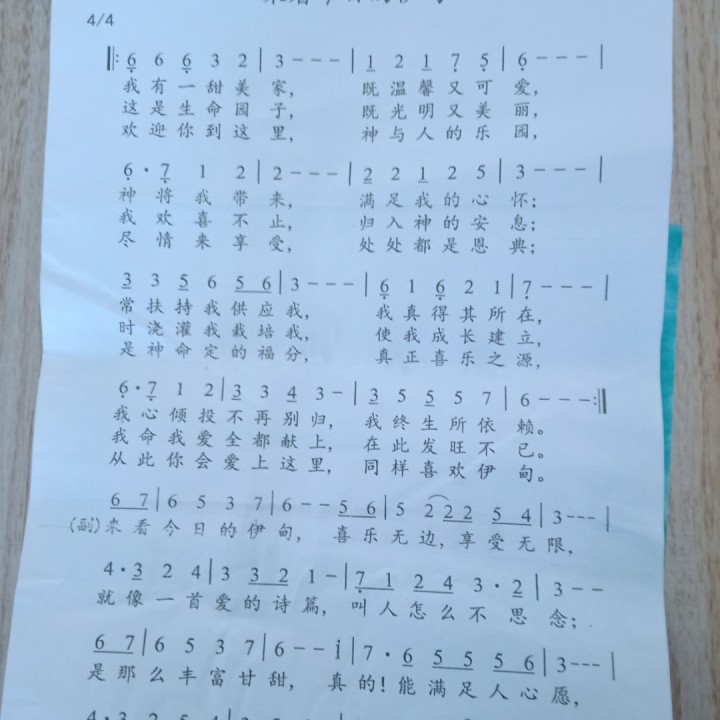 4/4
‖: 6 6 6 3 2 | 3 - - - | 1 2 1 7 5 | 6 - - - |
我有一甜美家， 既温馨又可爱，
这是生命园子， 既光明又美丽，
欢迎你到这里， 神与人的乐园，
6 · 7 1 2 | 2 - - - | 2 2 1 2 5 | 3 - - - |
神将我带来， 满足我的心怀；
我欢喜不止， 归入神的安息；
尽情来享受， 处处都是恩典；
3 3 5 6 5 6 | 3 - - - | 6 1 6 2 1 | 7 - - - |
常扶持我供应我， 我真得其所在，
时浇灌我栽培我， 使我成长建立，
是神命定的福分， 真正喜乐之源，
6 · 7 1 2 | 3 3 4 3 - | 3 5 5 5 7 | 6 - - - :‖
我心倾投不再别归， 我终生所依赖。
我命我爱全都献上， 在此发旺不已。
从此你会爱上这里， 同样喜欢伊甸。
6 7 | 6 5 3 7 | 6 - - 5 6 | 5 2 2 2 5 4 | 3 - - - |
(副)来看今日的伊甸， 喜乐无边，享受无限，
4 · 3 2 4 | 3 3 2 1 - | 7 1 2 4 3 · 2 | 3 - -
就像一首爱的诗篇，叫人怎么不思念；
6 7 | 6 5 3 7 | 6 - - i | 7 · 6 5 5 5 6 | 3 - - - |
是那么丰富甘甜， 真的！能满足人心愿，